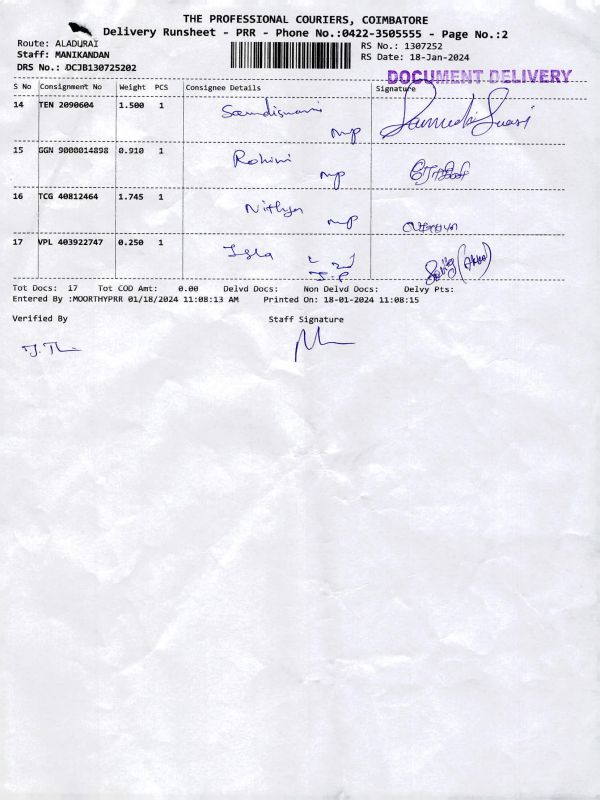 THE PROFESSIONAL COURIERS, COIMBATORE
Delivery Runsheet - PRR - Phone No.:0422-3505555 - Page No.:2
Route: ALADURAI
Staff: MANIKANDAN
DRS No.: DCJB130725202
RS No.: 1307252
RS Date: 18-Jan-2024
DOCUMENT DELIVERY
S No Consignment No Weight PCS Consignee Details Signature
14 TEN 2090604 1.500 1
MP
15 GGN 9000014898 0.910 1 Rohini
MP
16 TCG 40812464 1.745 1 Nithya
MP
17 VPL 403922747 0.250 1
Tot Docs: 17 Tot COD Amt: 0.00 Delvd Docs: Non Delvd Docs: Delvy Pts:
Entered By :MOORTHYPRR 01/18/2024 11:08:13 AM Printed On: 18-01-2024 11:08:15
Verified By Staff Signature